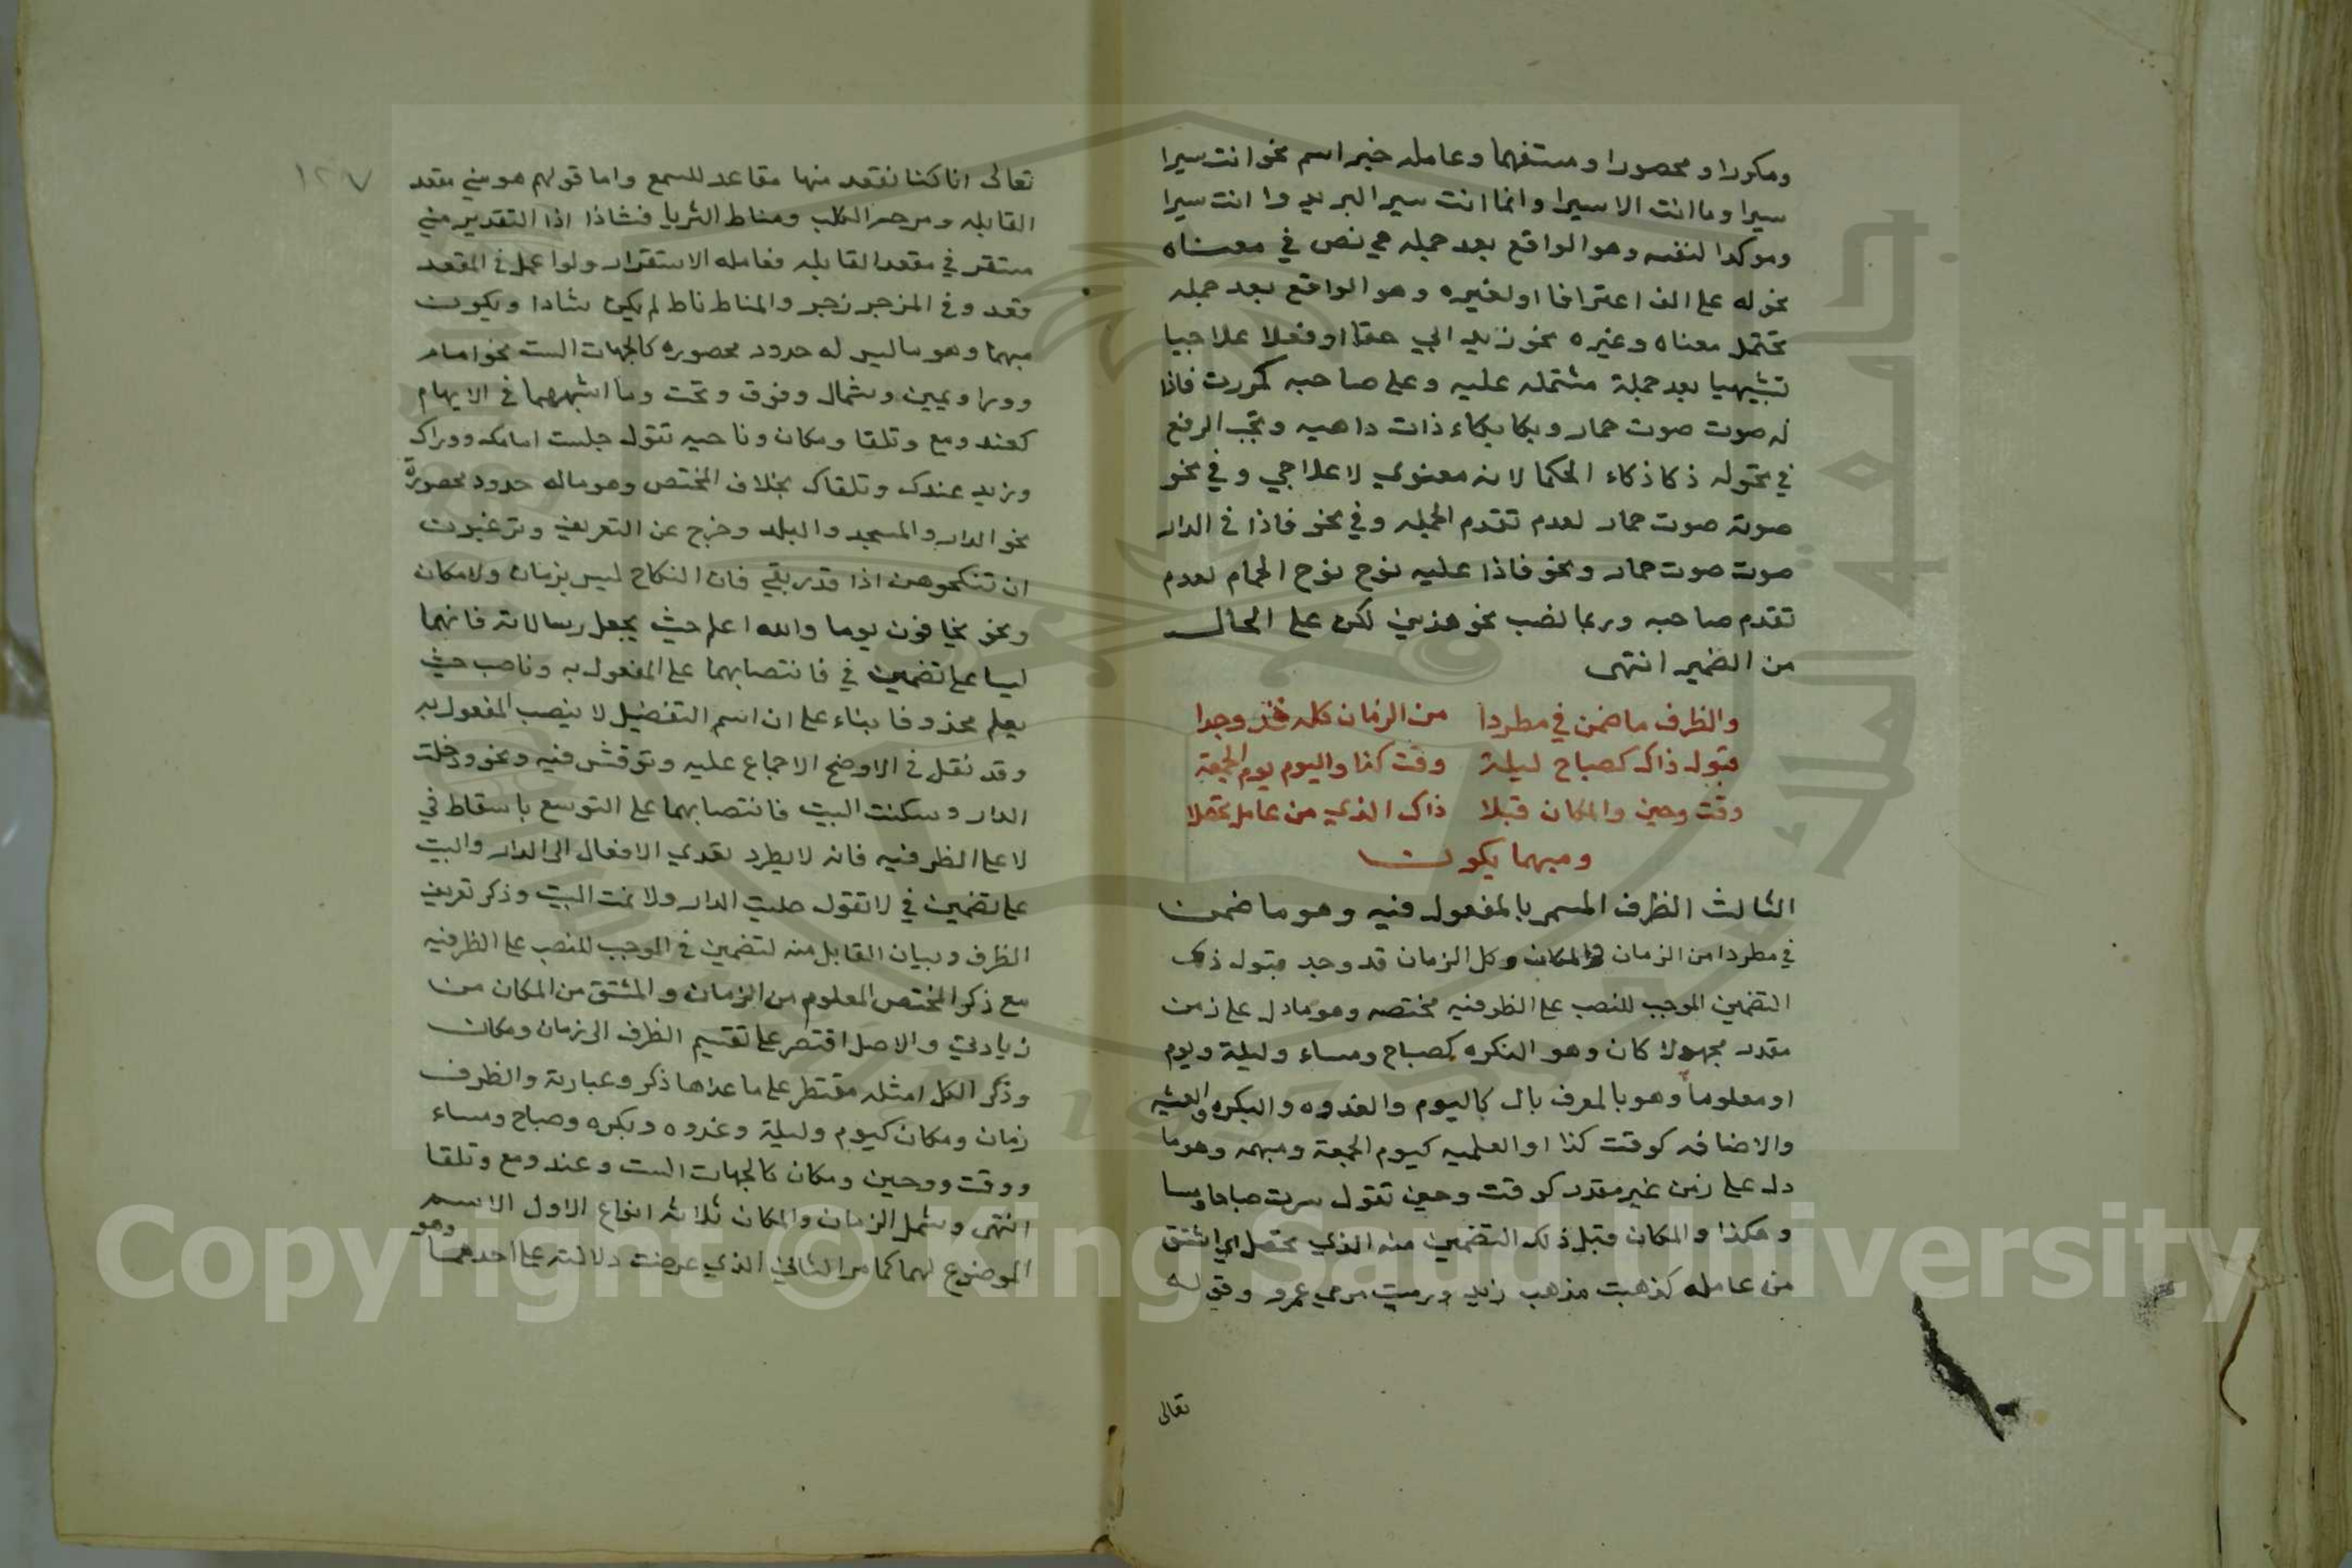 ومكررا ومحصورا ومستفهما وعامله خبر اسم نحو انت سيرا
سيرا وما انت الا سيرا وانما انت سير البريد وا انت سيرا
وموكدا لنفسه وهو الواقع بعد جمله هي نص في معناه
نحو له علي الف اعترافا او لغيره وهو الواقع بعد جمله
تحتمل معناه وغيره نحو زيد ابي حقا او فعلا علاجيا
تشبيهيا بعد جملة مشتمله عليه وعلى صاحبه كمررت فاذا
له صوت صوت حمار وبكا بكاء ذات داهيه ويجب الرفع
في نحو له ذكا ذكاء الحكما لانه معنوي لا علاجي وفي نحو
صوته صوت حمار لعدم تقدم الجمله وفي نحو فاذا في الدار
صوت صوت حمار ونحو فاذا عليه نوح نوح الحمام لعدم
تقدم صاحبه وربما نصب نحو هذين لكن على الحال
من الضمير انتهى
والظرف ما ضمن في مطردا من الزمان كله قد وجدا
قبول ذاك كصباح ليلة وقت كذا واليوم يوم الجمعة
وقت وحين والمكان قبلا ذاك الذي من عامل تحصلا
ومبهما يكون
الثالث الظرف المسمى بالمفعول فيه وهو ما ضمن
في مطردا من الزمان والمكان وكل الزمان قد وجد قبول ذلك
التضمين الموجب للنصب على الظرفيه مختصه وهو ما دل على زمن
مقدر مجهولا كان وهو النكره كصباح ومساء وليلة ويوم
او معلوما وهو بالمعرف بال كاليوم والغدوه والبكره والعشيه
والاضافه كوقت كذا او العلميه كيوم الجمعة ومبهمه وهو ما
دل على زمن غير مقدر كوقت وحين تقول سرت صباحا ومسا
وهكذا والمكان قبل ذلك التضمين منه الذي تحصل اي اشتق
من عامله كذهبت مذهب زيد ورميت مرمى عمرو وقوله
تعالى
١٢٧
تعالى انا كنا نقعد منها مقاعد للسمع واما قولهم هو مني مقعد
القابله ومزجر الكلب ومناط الثريا فشاذا اذا التقدير مني
مستقر في مقعد القابله فعامله الاستقرار ولو اعمل في المقعد
قعد وفي المزجر زجر والمناط ناط لم يكن شاذا ويكون
مبهما وهو ما ليس له حدود محصوره كالجهات الست نحو امام
وورا ويمين وشمال وفوق وتحت وما اشبهها في الابهام
كعند ومع وتلقا ومكان وناحيه تقول جلست امامك ووراك
وزيد عندك وتلقاك بخلاف المختص وهو ماله حدود محصورة
نحو الدار والمسجد والبلد وخرج عن التعريف وترغبون
ان تنكحوهن اذا قدر بفي فان النكاح ليس بزمان ولا مكان
ونحو يخافون يوما والله اعلم حيث يجعل رسالاته فانهما
ليسا على تضمين في فانتصابهما على المفعول به وناصب حيث
يعلم محذوفا بناء على ان اسم التفضيل لا ينصب المفعول به
وقد نقل في الاوضح الاجماع عليه ونوقش فيه ونحو دخلت
الدار وسكنت البيت فانتصابهما على التوسع باسقاط في
لا على الظرفيه فانه لا يطرد تعدي الافعال الى الدار والبيت
على تضمين في لا تقول صليت الدار ولا نمت البيت وذكر تعريف
الظرف وبيان القابل منه لتضمين في الموجب للنصب على الظرفيه
مع ذكر المختص المعلوم من الزمان والمشتق من المكان من
زيادتي والاصل اقتصر على تقسيم الظرف الى زمان ومكان
وذكر الكل امثله مقتطر على ما عداها ذكر وعبارته والظرف
زمان ومكان كيوم وليلة وغدوه وبكره وصباح ومساء
ووقت ووحين ومكان كالجهات الست وعند ومع وتلقا
انتهى وشمل الزمان والمكان ثلاثه انواع الاول الاسم
الموضوع لهما كما مر الثاني الذي عرضت دلالته على احدهما وهو
Copyright © King Saud University